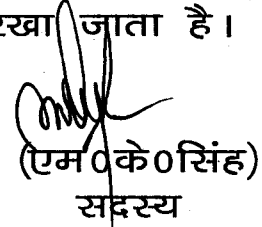 रखा जाता है।
(एम0के0सिंह)
सदस्य